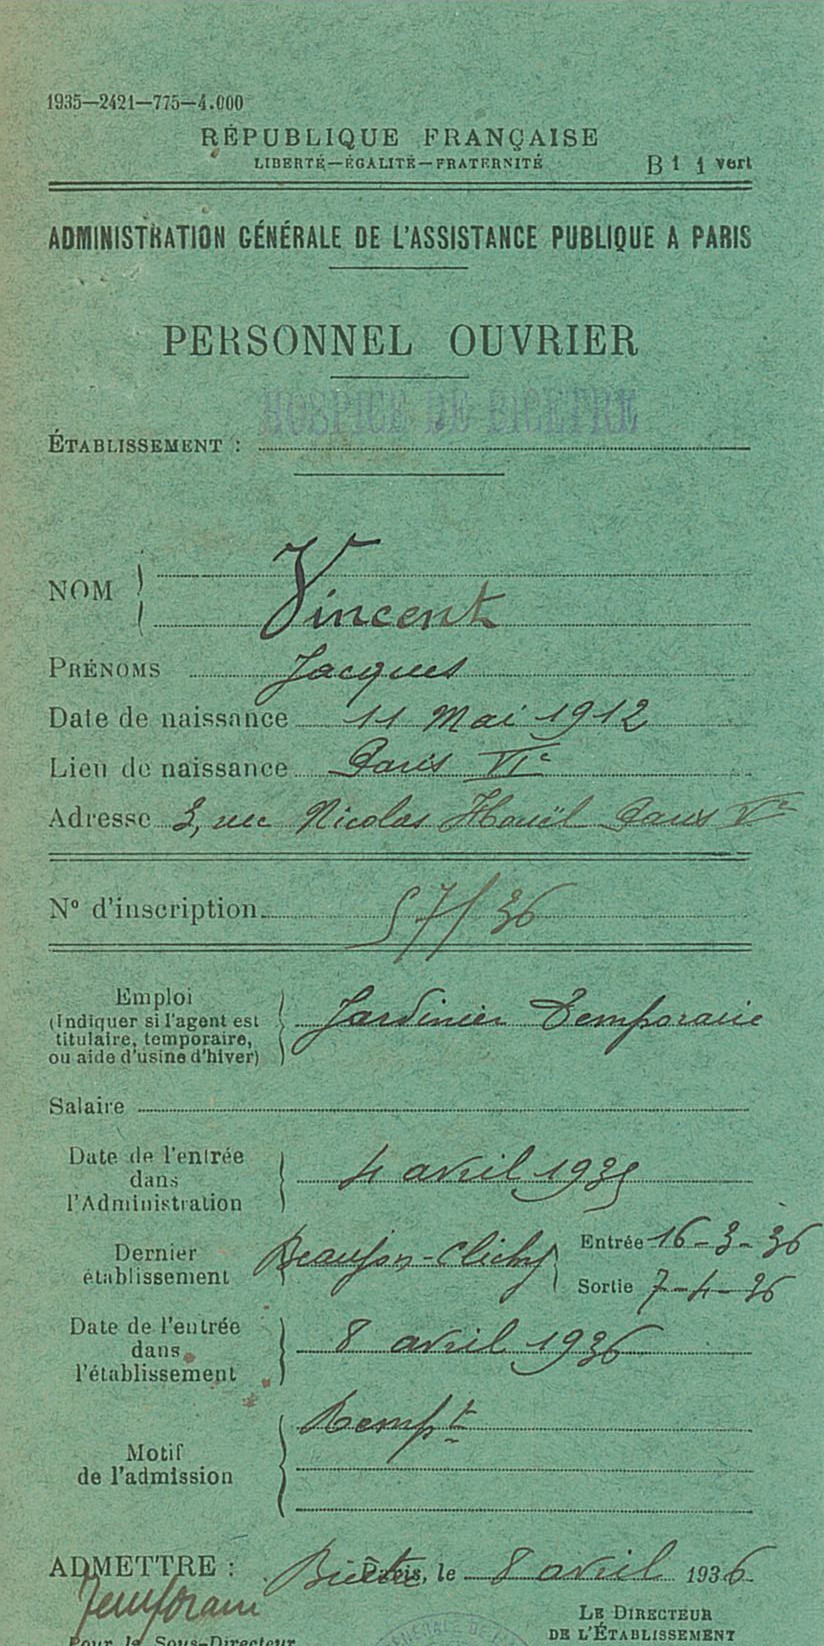 1935—2421—775—4.000
RÉPUBLIQUE FRANÇAISE
LIBERTÉ—ÉGALITÉ—FRATERNITÉ
B 1 1 vert
ADMINISTRATION GÉNÉRALE DE L'ASSISTANCE PUBLIQUE A PARIS
PERSONNEL OUVRIER
HOSPICE DE BICETRE
ÉTABLISSEMENT :
NOM Vincent
PRÉNOMS Jacques
Date de naissance 11 Mai 1912
Lieu de naissance Paris VIe
Adresse 3, rue Nicolas Houël Paris Ve
N° d'inscription 57/36
Emploi
(Indiquer si l'agent est
titulaire, temporaire,
ou aide d'usine d'hiver)
Jardinier Temporaire
Salaire
Date de l'entrée
dans
l'Administration
4 avril 1935
Dernier
établissement
Beaujon-Clichy
Entrée 16-3-36
Sortie 7-4-36
Date de l'entrée
dans
l'établissement
8 avril 1936
Motif
de l'admission
Rempt
ADMETTRE : Bicêtre Paris, le 8 avril 1936
Temporaire
LE DIRECTEUR
Pour le Sous-Directeur
DE L'ÉTABLISSEMENT